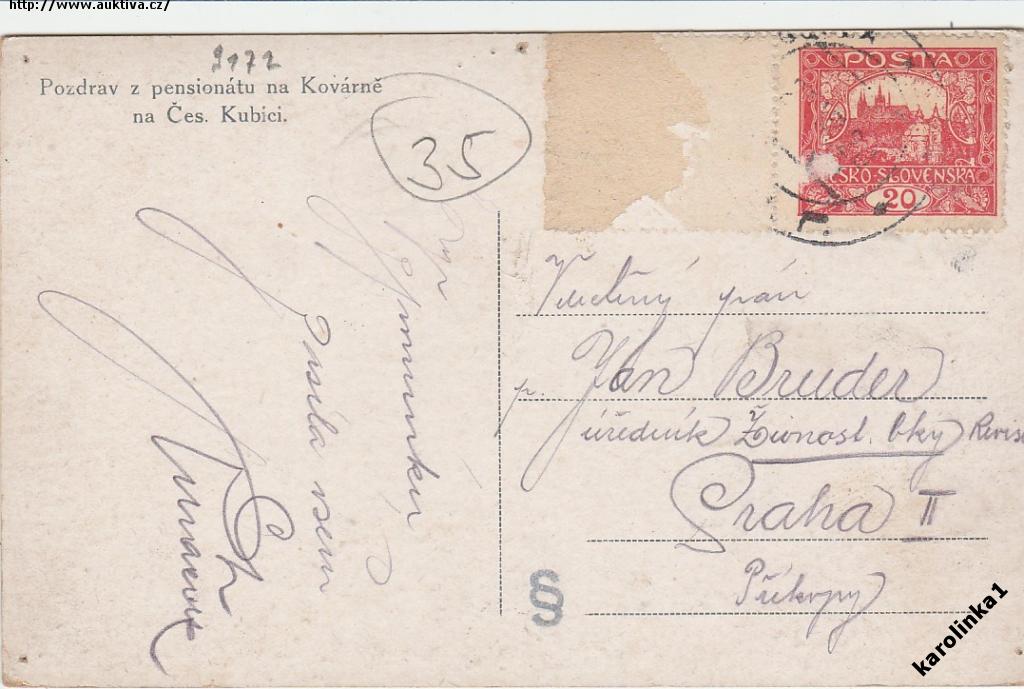 http://www.auktiva.cz/
9172
Pozdrav z pensionátu na Kovárně
na Čes. Kubici.
35
POSTA
ČESKO-SLOVENSKÁ
20
posílá všem
pán
p. Jan Bruder
úředník Živnost. bky
Praha II
Příkopy
§
karolinka1